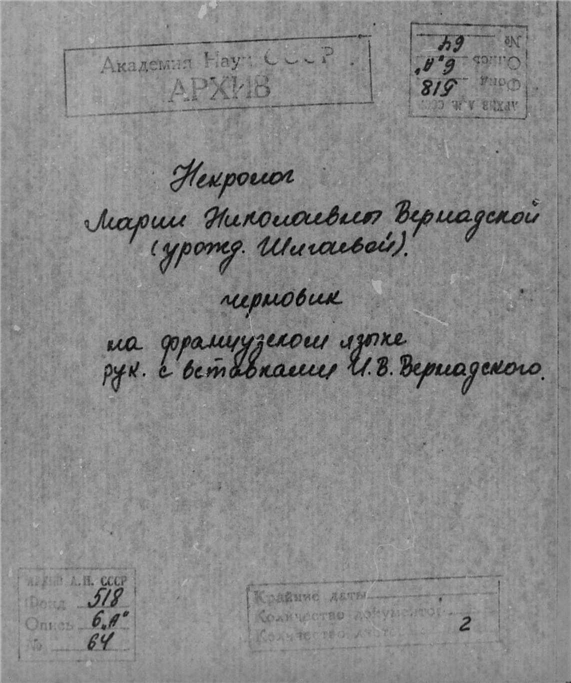 Академия Наук СССР
АРХИВ
АРХИВ А. Н. СССР
Фонд 518
Опись 6„А"
№ 64
Некролог
Марии Николаевны Вернадской
(урожд. Шигаевой).
черновик
на французском языке
рук. с вставками И.В. Вернадского.
АРХИВ А.Н. СССР
Фонд 518
Опись 6„А"
№ 64
Крайние даты
Количество документов
Количество листов 2